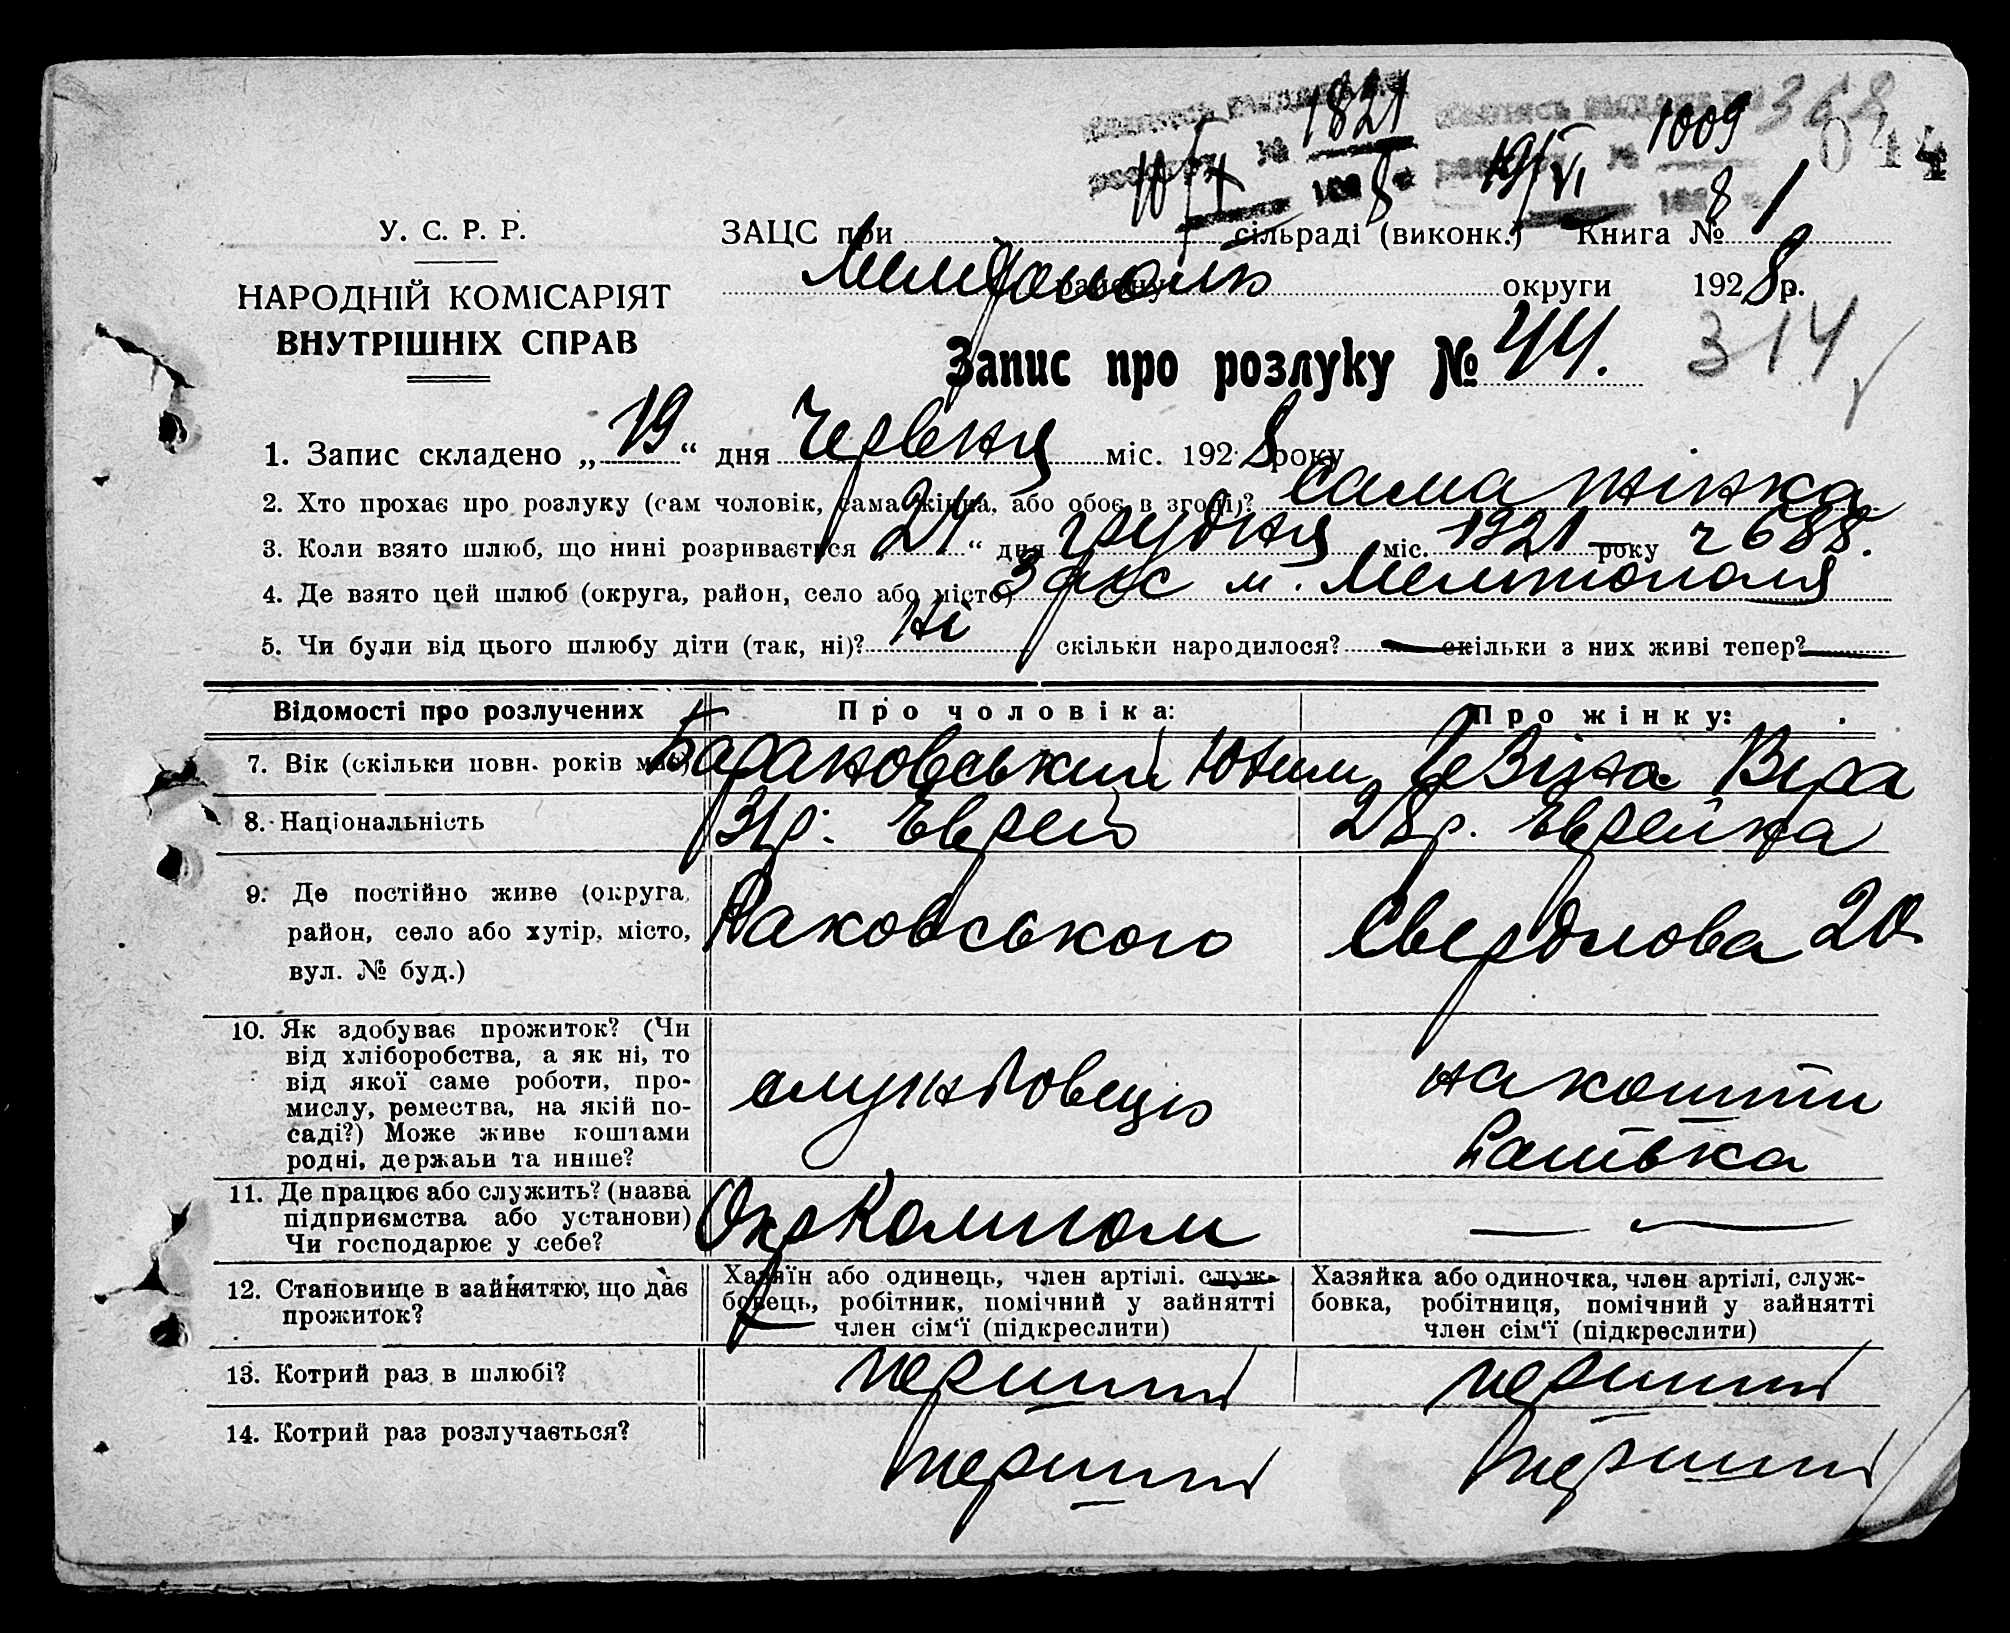 1821 1009 368
10/X № 8 19/VI № 8 044
У. С. Р. Р.
ЗАЦС при сільраді (виконк.) Книга № 1
Мелітополь району округи 1928 р.
НАРОДНІЙ КОМІСАРІЯТ
ВНУТРІШНІХ СПРАВ
Запис про розлуку № 44.
314
1. Запис складено „19“ дня Червня міс. 1928 року
2. Хто прохає про розлуку (сам чоловік, сама жінка, або обоє в згоді)? Сама жінка
3. Коли взято шлюб, що нині розривається „24“ дня грудня міс. 1921 року ч 688.
4. Де взято цей шлюб (округа, район, село або місто) Загс м. Мелітополя
5. Чи були від цього шлюбу діти (так, ні)? Ні скільки народилося? — скільки з них живі тепер? —
Відомості про розлучених
Про чоловіка:
Про жінку:
7. Вік (скільки повн. років має)
Барановський Юхим
Левіна Віра
8. Національність
31 р. Еврей
28 р. Еврейка
9. Де постійно живе (округа,
район, село або хутір, місто,
вул. № буд.)
Раковського
Свердлова 20
10. Як здобуває прожиток? (Чи
від хліборобства, а як ні, то
від якої саме роботи, про-
мислу, ремества, на якій по-
саді?) Може живе коштами
родні, держави та инше?
службовець
на кошти
батька
11. Де працює або служить? (назва
підприємства або установи)
Чи господарює у себе?
— —
12. Становище в зайняттю, що дає
прожиток?
Хазяїн або одинець, член артілі, служ-
бовець, робітник, помічний у зайнятті
член сім'ї (підкреслити)
Хазяйка або одиночка, член артілі, служ-
бовка, робітниця, помічний у зайнятті
член сім'ї (підкреслити)
13. Котрий раз в шлюбі?
перший
перший
14. Котрий раз розлучається?
перший
перший